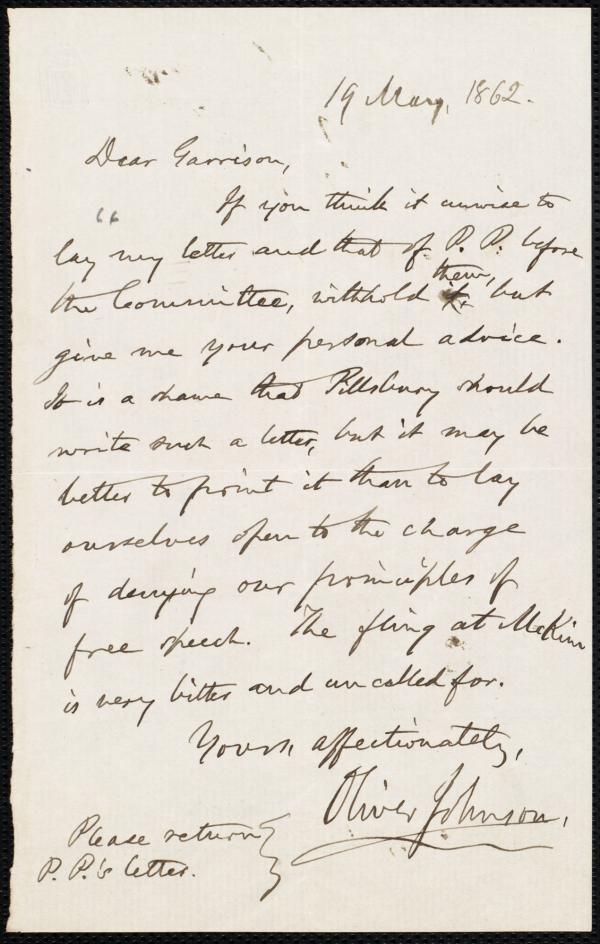 19 May, 1862.
Dear Garrison,
If you think it unwise to
lay my letter and that of P. P. before
them,
the Committee, withhold it, but
give me your personal advice.
It is a shame that Pillsbury should
write such a letter, but it may be
better to print it than to lay
ourselves open to the charge
of denying our principles of
free speech. The fling at McKim
is very bitter and uncalled for.
Yours, affectionately,
Oliver Johnson.
Please return
P. P.'s letter.